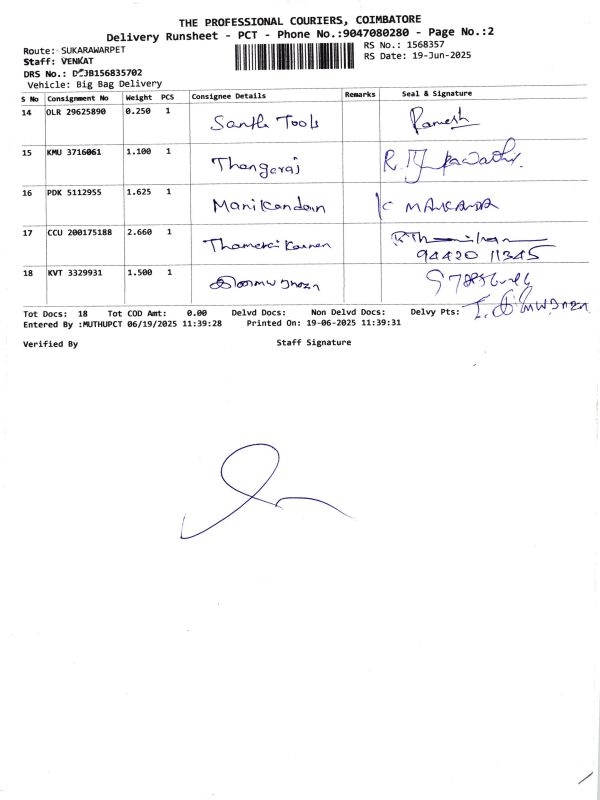 THE PROFESSIONAL COURIERS, COIMBATORE
Delivery Runsheet - PCT - Phone No.:9047080280 - Page No.:2
Route: SUKARAWARPET
RS No.: 1568357
Staff: VENKAT
RS Date: 19-Jun-2025
DRS No.:
Vehicle: Big Bag Delivery
S No Consignment No Weight PCS Consignee Details Remarks Seal & Signature
14 OLR 29625890 0.250 1 Santhi Tools Ramesh
15 KMU 3716061 1.100 1 Thangaraj
16 PDK 5112955 1.625 1 Manikandan
17 CCU 200175188 2.660 1
94420 11345
18 KVT 3329931 1.500 1
Tot Docs: 18 Tot COD Amt: 0.00 Delvd Docs: Non Delvd Docs: Delvy Pts:
Entered By :MUTHUPCT 06/19/2025 11:39:28 Printed On: 19-06-2025 11:39:31
Verified By Staff Signature